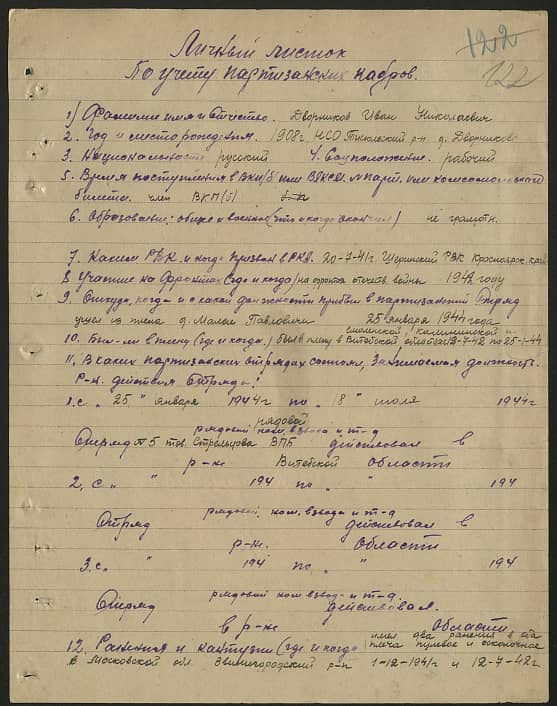 122
122
Личный листок
По учету партизанских кадров.
1) Фамилия имя и отчество. Дворников Иван Николаевич
2. Год и место рождения. 1908г. НСО, р-н д. Дворниково
3. Национальность русский 4. Соцположение. рабочий
5. Время поступления в ВКП/б или ВЛКСМ. № парт. или комсомольского
билета. член ВКП(б)
6. Образование: общее и военное (что и когда окончил) не грамотн.
7. Каким РВК и когда призван в РКА. 20-7-41г. РВК Красноярск. край
8 Участие на фронтах (где и когда) на фронтах отечеств. войны 1942 году
9. Откуда, когда и с какой должности прибыл в партизанский отряд
ушел из плена д. Малое Павловичи 25 января 1944 года
смоленской, калининской и
10. Был-ли в плену (где и когда.) был в плену в Витебской областях 12-7-42 по 25-1-44
11, В каких партизанских отрядах состоял, Занимаемая должность.
Р-н. действия отряда:
1. с „ 25 " января 1944г по „ 18 " июля 1944г
рядовой
рядовой ком. взвода и т-д
Отряд № 5 тов. Стрельцова ВПБ действовал в
р-не Витебской области
2, с „ " 194 по „ " 194
Отряд рядовой, ком. взвода и т-д действовал в
р-не. области
3. с „ " 194 по „ " 194
Отряд рядовой ком взвод- и т-д. действовал.
в р-не области
имел два ранения в оба
12. Ранения и контузии (где и когда) плеча пулевое и осколочное
в Московской обл. Звенигородский р-н 1-12-1941г и 12-7-42г.